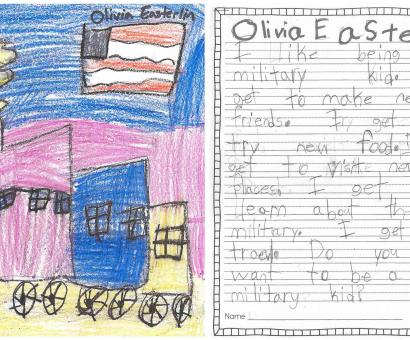 Olivia Easterlin
Olivia Easte
I like being
military kid.
get to make ne
friends. I get
try new food. I
get to visite new
places. I get
learn about th
military. I get
travel. Do you
want to be a
military kid?
Name